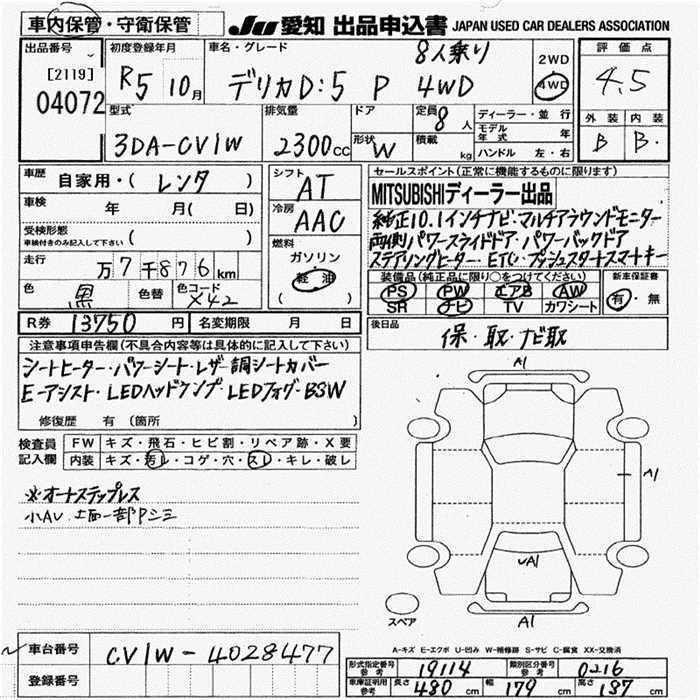 車内保管・守衛保管
JU 愛知 出品申込書 JAPAN USED CAR DEALERS ASSOCIATION
出品番号
[2119]
04072
初度登録年月
R5 10月
車名・グレード
8人乗り
デリカD:5 P 4WD
2WD
4WD
評価点
4.5
型式
3DA-CV1W
排気量
2300cc
ドア
形状 W
定員 8人
積載 kg
ディーラー・並行
モデル年式 年
ハンドル 左・右
外装 内装
B B
車歴 自家用・( レンタ )
車検 年 月( 日)
受検形態
車検付きのみ記入して下さい ( )
走行 万7千876km
色 黒 色替 色コード X42
シフト AT
冷房 AAC
燃料
ガソリン
軽油
( )
セールスポイント(正常に機能するものに限ります)
MITSUBISHIディーラー出品
純正10.1インチナビ・マルチアラウンドモニター
両側パワースライドドア・パワーバックドア
ステアリングヒーター・ETC・プッシュスタートスマートキー
装備品(純正品に限り○をつけてください)
PS PW エアB AW
SR ナビ TV カワシート
新車保証書
有・無
R券 13750円 名変期限 月 日
後日品
保・取・ナビ取
注意事項申告欄(不具合内容等は具体的に記入して下さい)
シートヒーター・パワーシート・レザー調シートカバー
E-アシスト・LEDヘッドランプ・LEDフォグ・BSW
修復歴 有 (箇所
検査員記入欄
FW キズ・飛石・ヒビ割・リペア跡・X要
内装 キズ・汚れ・コゲ・穴・スレ・キレ・破レ
※オートステップレス
小AU
A1
A1
A1
A1
スペア
A-キズ E-エクボ U-凹み W-補修跡 S-サビ C-腐食 XX-交換済
車台番号 CV1W-4028477
登録番号
形式指定番号参考 19114 類別区分番号参考 0216
車庫証明用参考 長さ 480cm 幅 179cm 高さ 187cm